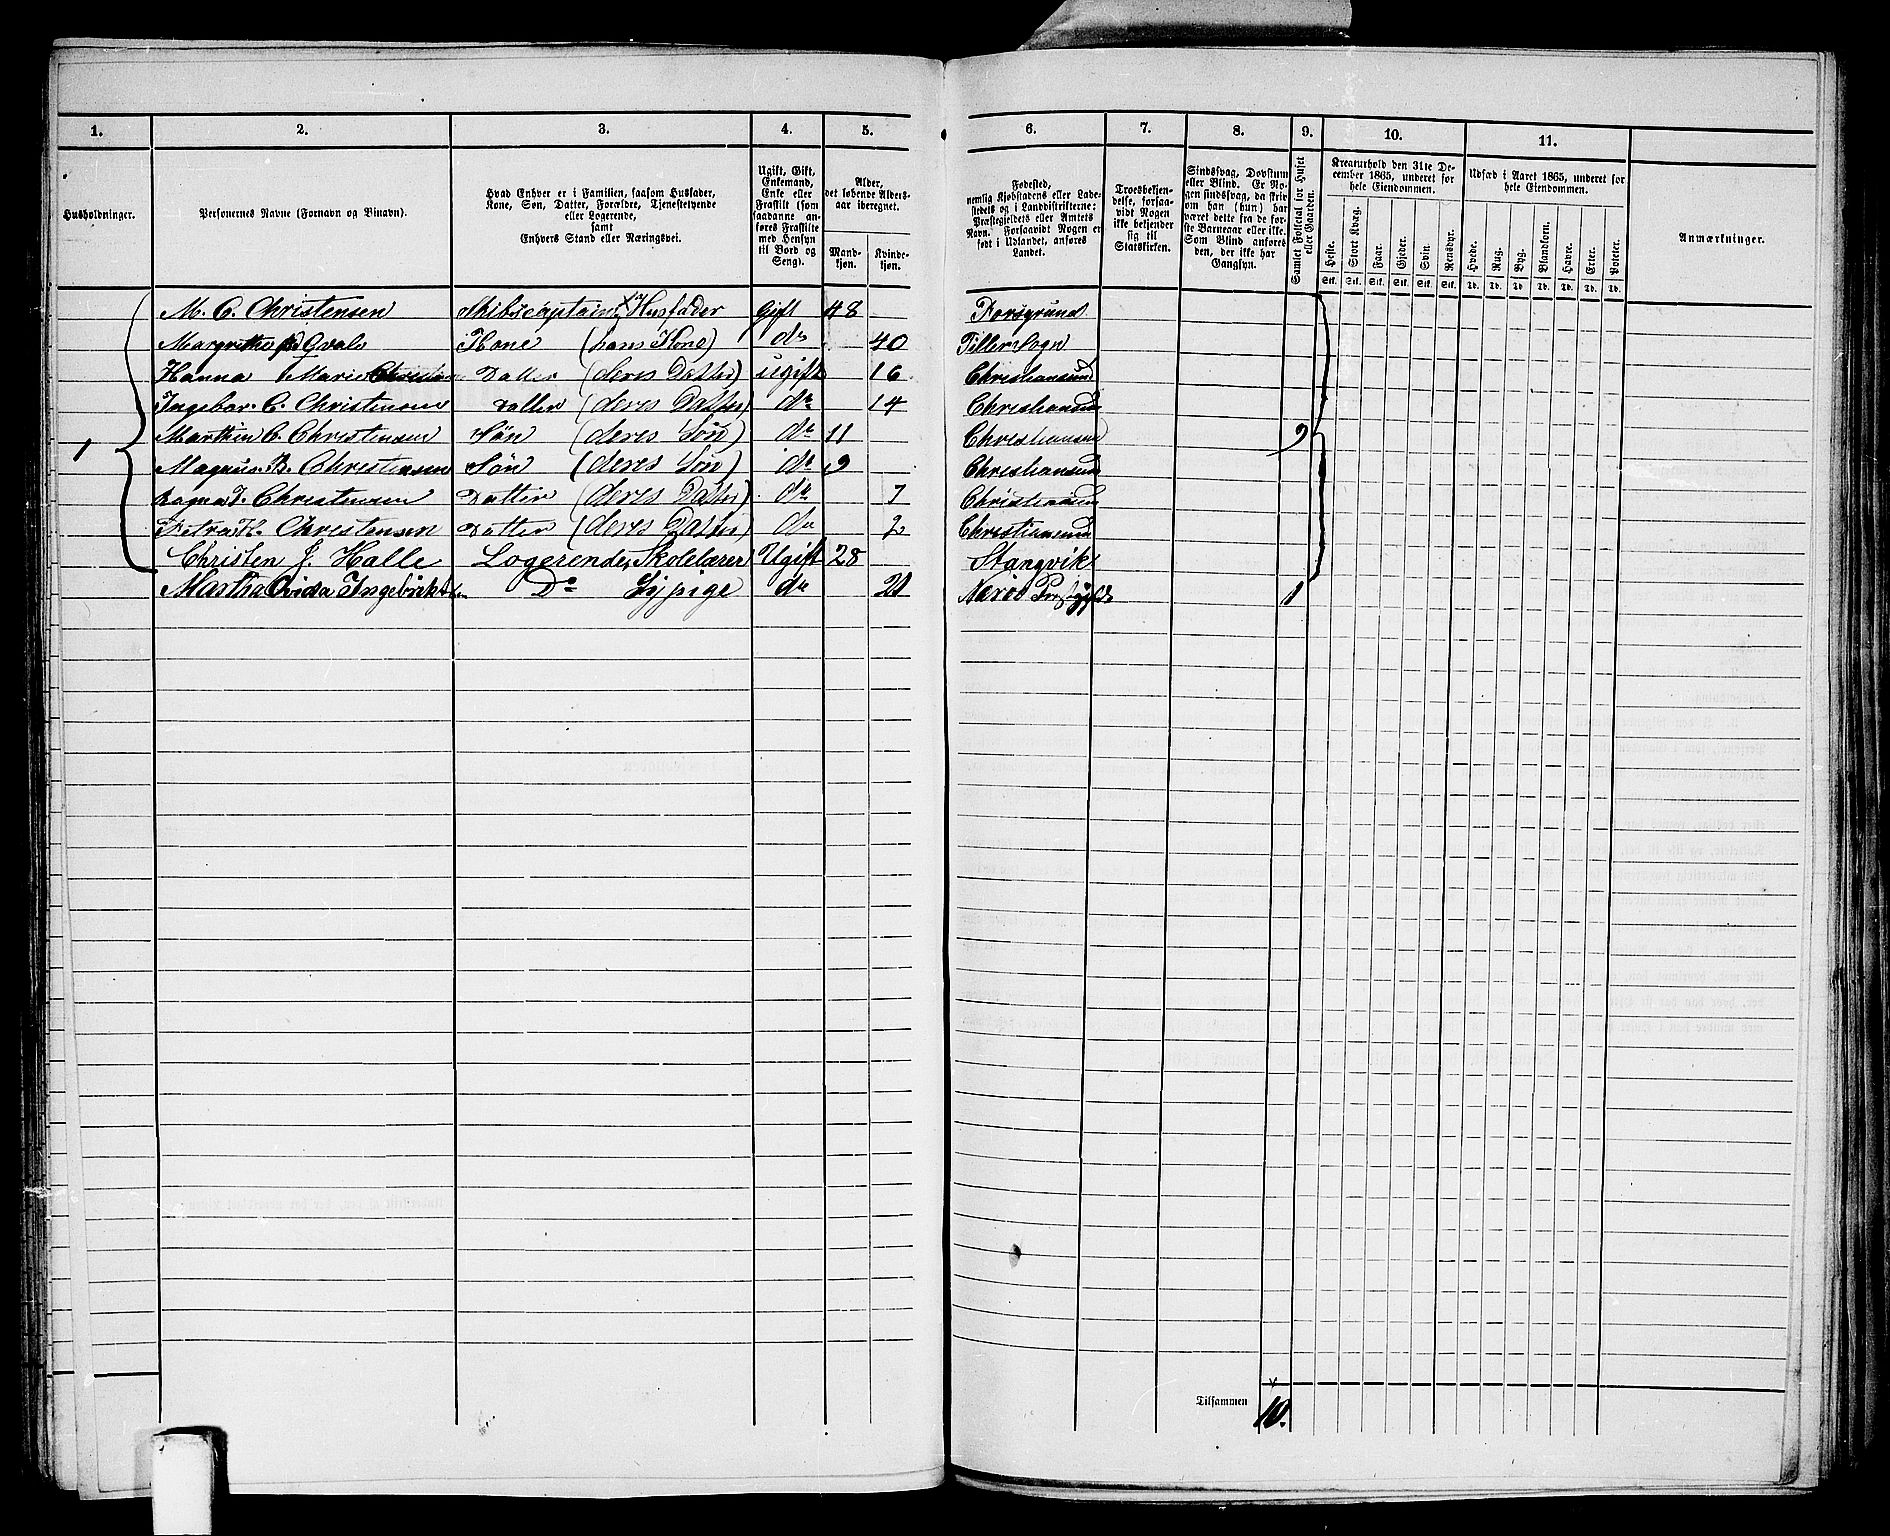 1. 2. 3. 4. 5. 6. 7. 8. 9. 10. 11.
Husholdninger.
Personernes Navne (Fornavn og Vinavn).
Hvad Enhver er i Familien, saasom Husfader,
Kone, Søn, Datter, Forældre, Tjenestetyende
eller Logerende,
samt
Enhvers Stand eller Næringsvei.
Ugift, Gift,
Enkemand,
Enke eller
Fraskilt (som
saadanne an-
føres Fraskilte
med Hensyn
til Bord og
Seng).
Alder,
det løbende Alders-
aar iberegnet.
Mand-
kjøn.
Kvinde-
kjøn.
Fødested,
nemlig Kjøbstadens eller Lade-
stedets og i Landdistrikterne:
Præstegjeldets eller Amtets
Navn. Forsaavidt Nogen er
født i Udlandet, anføres
Landet.
Troesbekjen-
delse, forsaa-
vidt Nogen
ikke bekjender
sig til
Statskirken.
Sindssvag, Døvstum
eller Blind. Er No-
gen sindssvag, da skriv
om han (hun) har
været dette fra de før-
ste Barneaar eller ikke.
Som Blind anføres
den, der ikke har
Gangsyn.
Samlet Folketal for Huset
eller Gaarden.
Kreaturhold den 31te De-
cember 1865, underet for
hele Eiendommen.
Heste. Stort Kvæg. Faar. Gjeder. Svin. Rensdyr.
Stk. Stk. Stk. Stk. Stk. Stk.
Udsæd i Aaret 1865, underet for
hele Eiendommen.
Hvede. Rug. Byg. Blandkorn. Havre. Erter. Poteter.
Td. Td. Td. Td. Td. Td. Td.
Anmærkninger.
M. C. Christensen Skibscaptain, Husfader Gift 48 Porsgrund
Margrethe Qvale Kone (hans Kone) do 40 Tiller Sogn
Hanna Marie Christen Datter (deres Datter) ugift 16 Christiansund
Ingebor. C. Christensen Datter (deres Datter) do 14 Christiansund
1 Marthin C. Christensen Søn (deres Søn) do 11 Christiansund 9
Magnus B. Christensen Søn (deres Søn) do 9 Christiansund
Lagna J. Christensen Datter (deres Datter) do 7 Christiansund
Petra H. Christensen Datter (deres Datter) do 2 Christiansund
Christen J. Halle Logerende, Skolelærer Ugift 28 Stangvik
Martha Ingebrikt Do Sypige do 21 Nærøe Præstgjeld 1
Tilsammen 10.